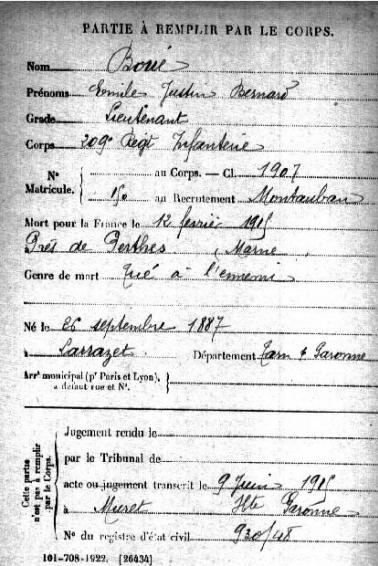 PARTIE À REMPLIR PAR LE CORPS.
Nom Boué
Prénoms Emile Justin Bernard
Grade Lieutenant
Corps 209e Regt Infanterie
N° Matricule. { au Corps. — Cl. 1907
au Recrutement Montauban
Mort pour la France le 12 fevrier 1915
Près de Perthes, Marne,
Genre de mort Tué à l'ennemi
Né le 26 septembre 1887
à Larrazet. Département Tarn & Garonne
Arrt municipal (pr Paris et Lyon), à défaut rue et N°. {
Cette partie n'est pas à remplir par le Corps. {
Jugement rendu le
par le Tribunal de
acte ou jugement transcrit le 9 Juin 1915
à Muret Hte Garonne
N° du registre d'état civil 930/48
101-708-1922. [26434]